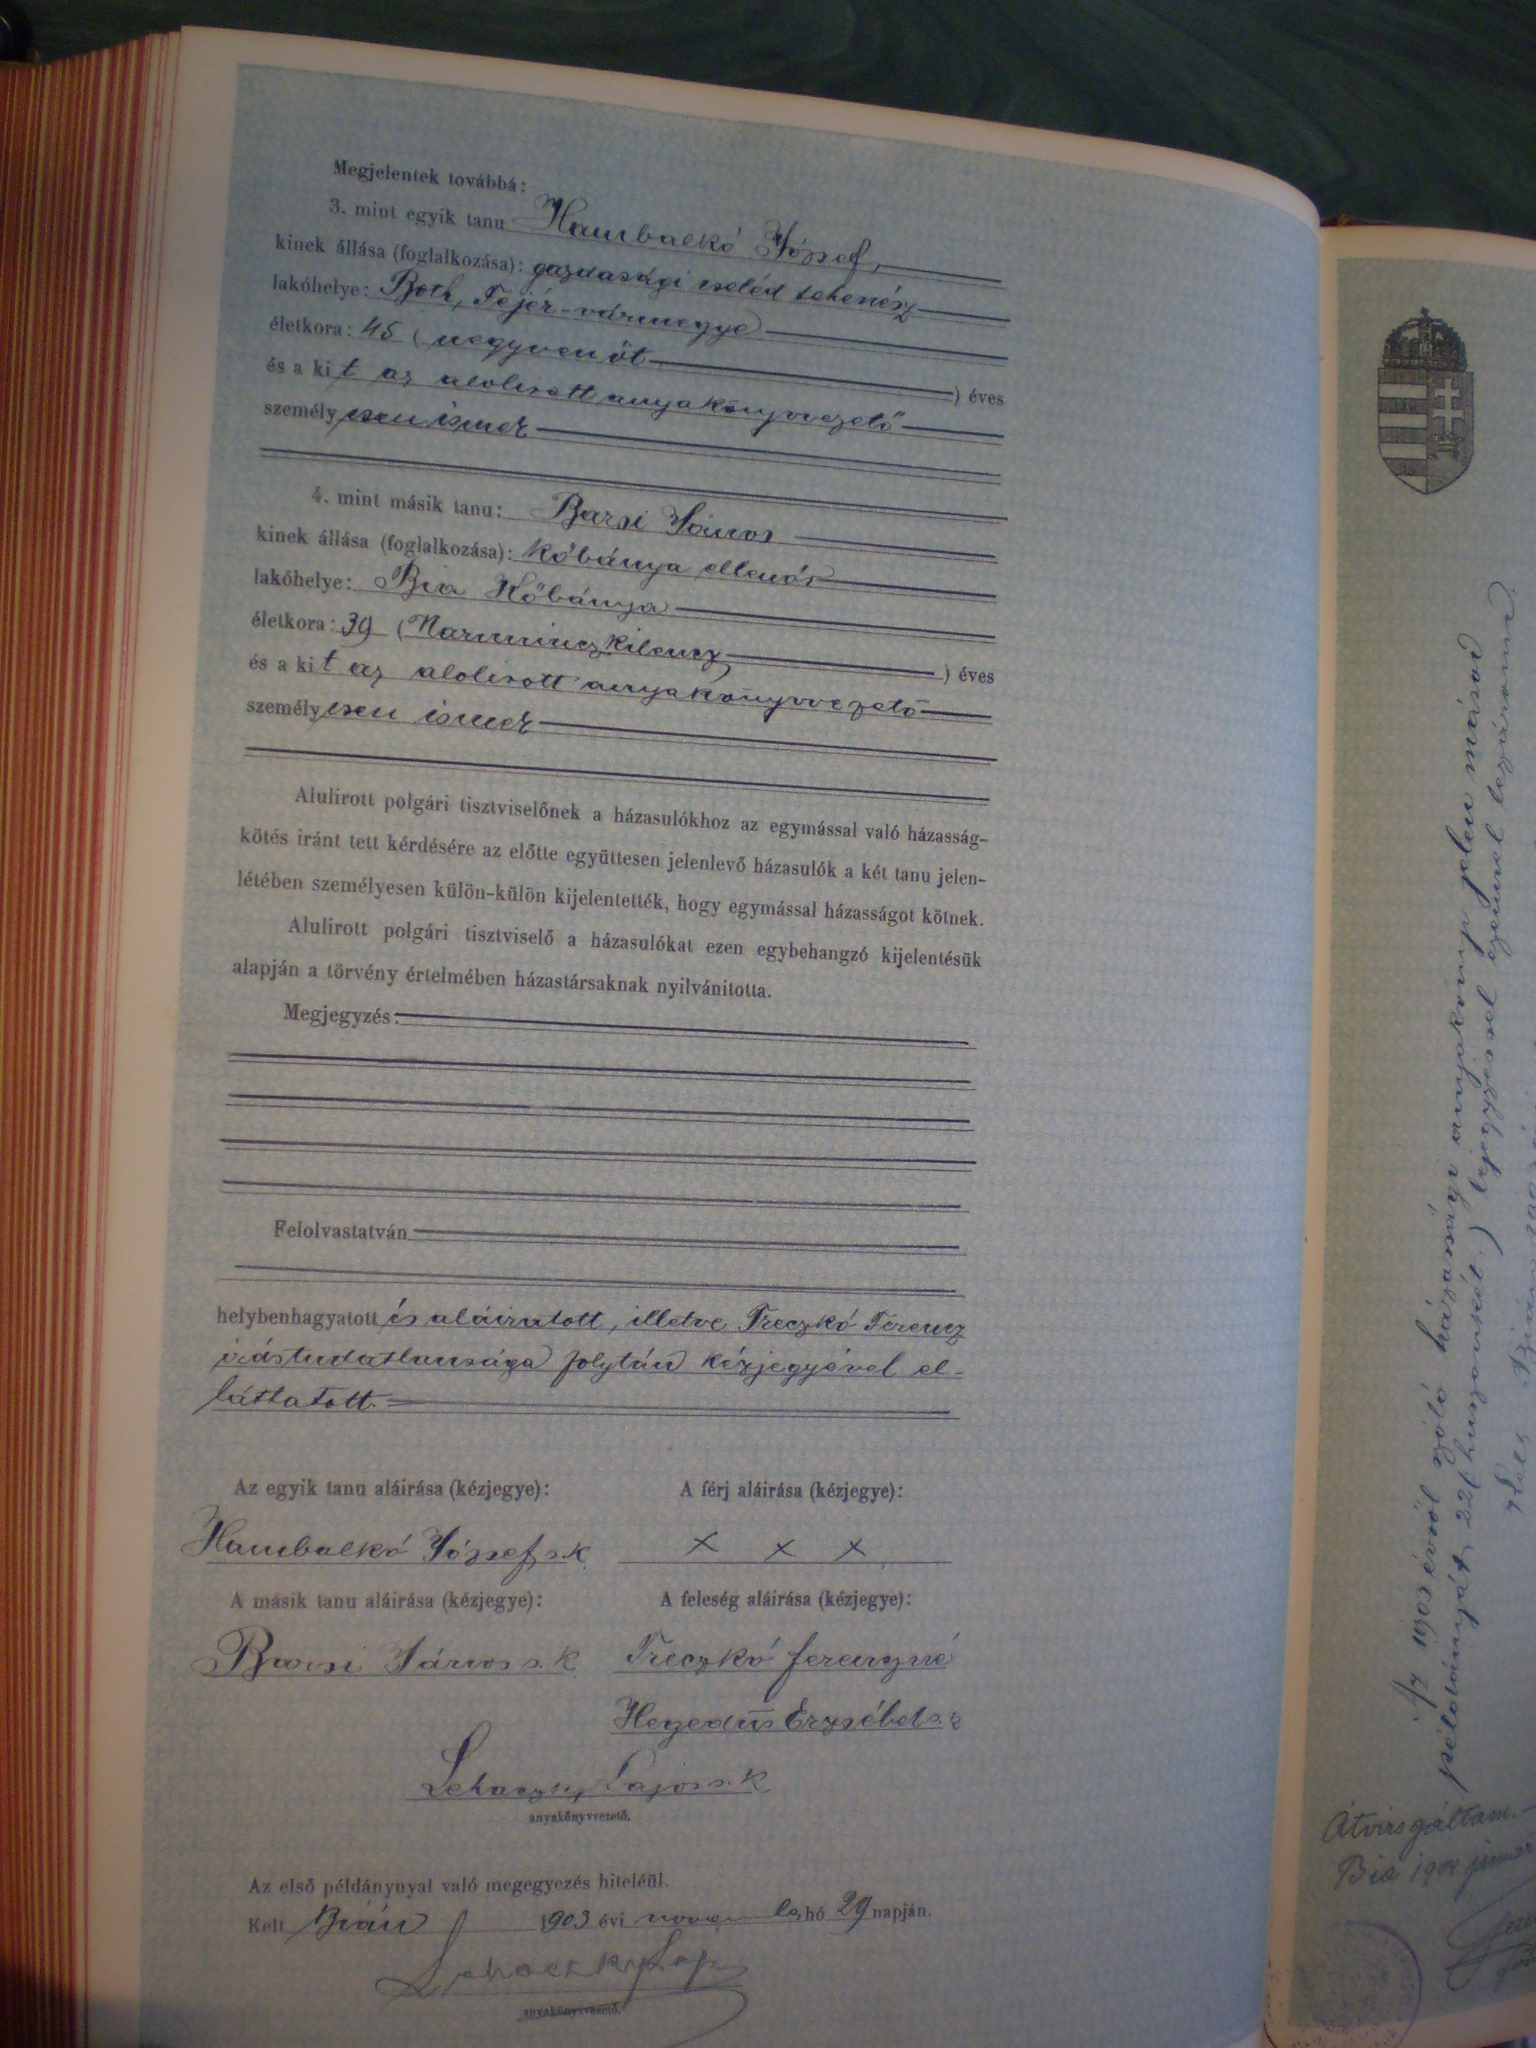 Megjelentek továbbá:
3. mint egyik tanu Hambalkó József,
kinek állása (foglalkozása): gazdasági cseléd tehenész
lakóhelye: Both, Fejér-vármegye
életkora: 45 (negyvenöt ) éves
és a kit az alolirott anyakönyvvezető
személyesen ismer
4. mint másik tanu: Barsi János
kinek állása (foglalkozása): kőbánya ellenőr
lakóhelye: Bia Kőbánya
életkora: 39 (Harminczkilencz ) éves
és a kit az alolirott anyakönyvvezető
személyesen ismer
Alulirott polgári tisztviselőnek a házasulókhoz az egymással való házasság-
kötés iránt tett kérdésére az előtte együttesen jelenlevő házasulók a két tanu jelen-
létében személyesen külön-külön kijelentették, hogy egymással házasságot kötnek.
Alulirott polgári tisztviselő a házasulókat ezen egybehangzó kijelentésük
alapján a törvény értelmében házastársaknak nyilvánitotta.
Megjegyzés:
Felolvastatván
helybenhagyatott és aláiratott, illetve Treczkó Ferencz
irástudatlansága folytán kézjegyével el-
láttatott.
Az egyik tanu aláirása (kézjegye):
A férj aláirása (kézjegye):
Hambalkó József s.k.
x x x
A másik tanu aláirása (kézjegye):
A feleség aláirása (kézjegye):
Barsi János s.k
Treczkó Ferenczné
Hegedüs Erzsébet s.k
Lajos s.k
anyakönyvvezető.
Az első példánynyal való megegyezés hiteléül.
Kelt Bián 1903 évi novem hó 29 napján.
anyakönyvvezető.
1903 évről szóló házassági anyakönyv jelen másod
példányát, 22 (huszonkét) bejegyzéssel ezennel lezárom.
Átvizsgáltam.
Bia 1904 január